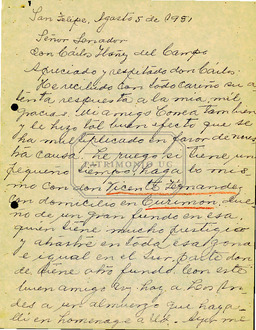 San Felipe, Agosto 5 de 1951
Señor Senador
don Cárlos Ibáñez del Campo
Apreciado y respetado don Cárlos:
He recibido con todo cariño su a-
tenta respuesta a la mia, mil
gracias. Mi amigo Coma tambien
y le hizo tal buen efecto que se
ha multiplicado en favor de nues
tra causa. Le ruego si tiene un
PATRIMONIO UC
pequeño tiempo, haga lo mis
mo con don Vicente Fernandez
con domicilio en Curimon, due
no de un gran fundo en esa,
quien tiene mucho prestigio
y arrastre en toda esa zona
e igual en el Sur, parte don
de tiene otro fundo. Con este
buen amigo voy hoy a Los An
des a un almuerzo que hay a
lli en homenage a Ud. Ayer me